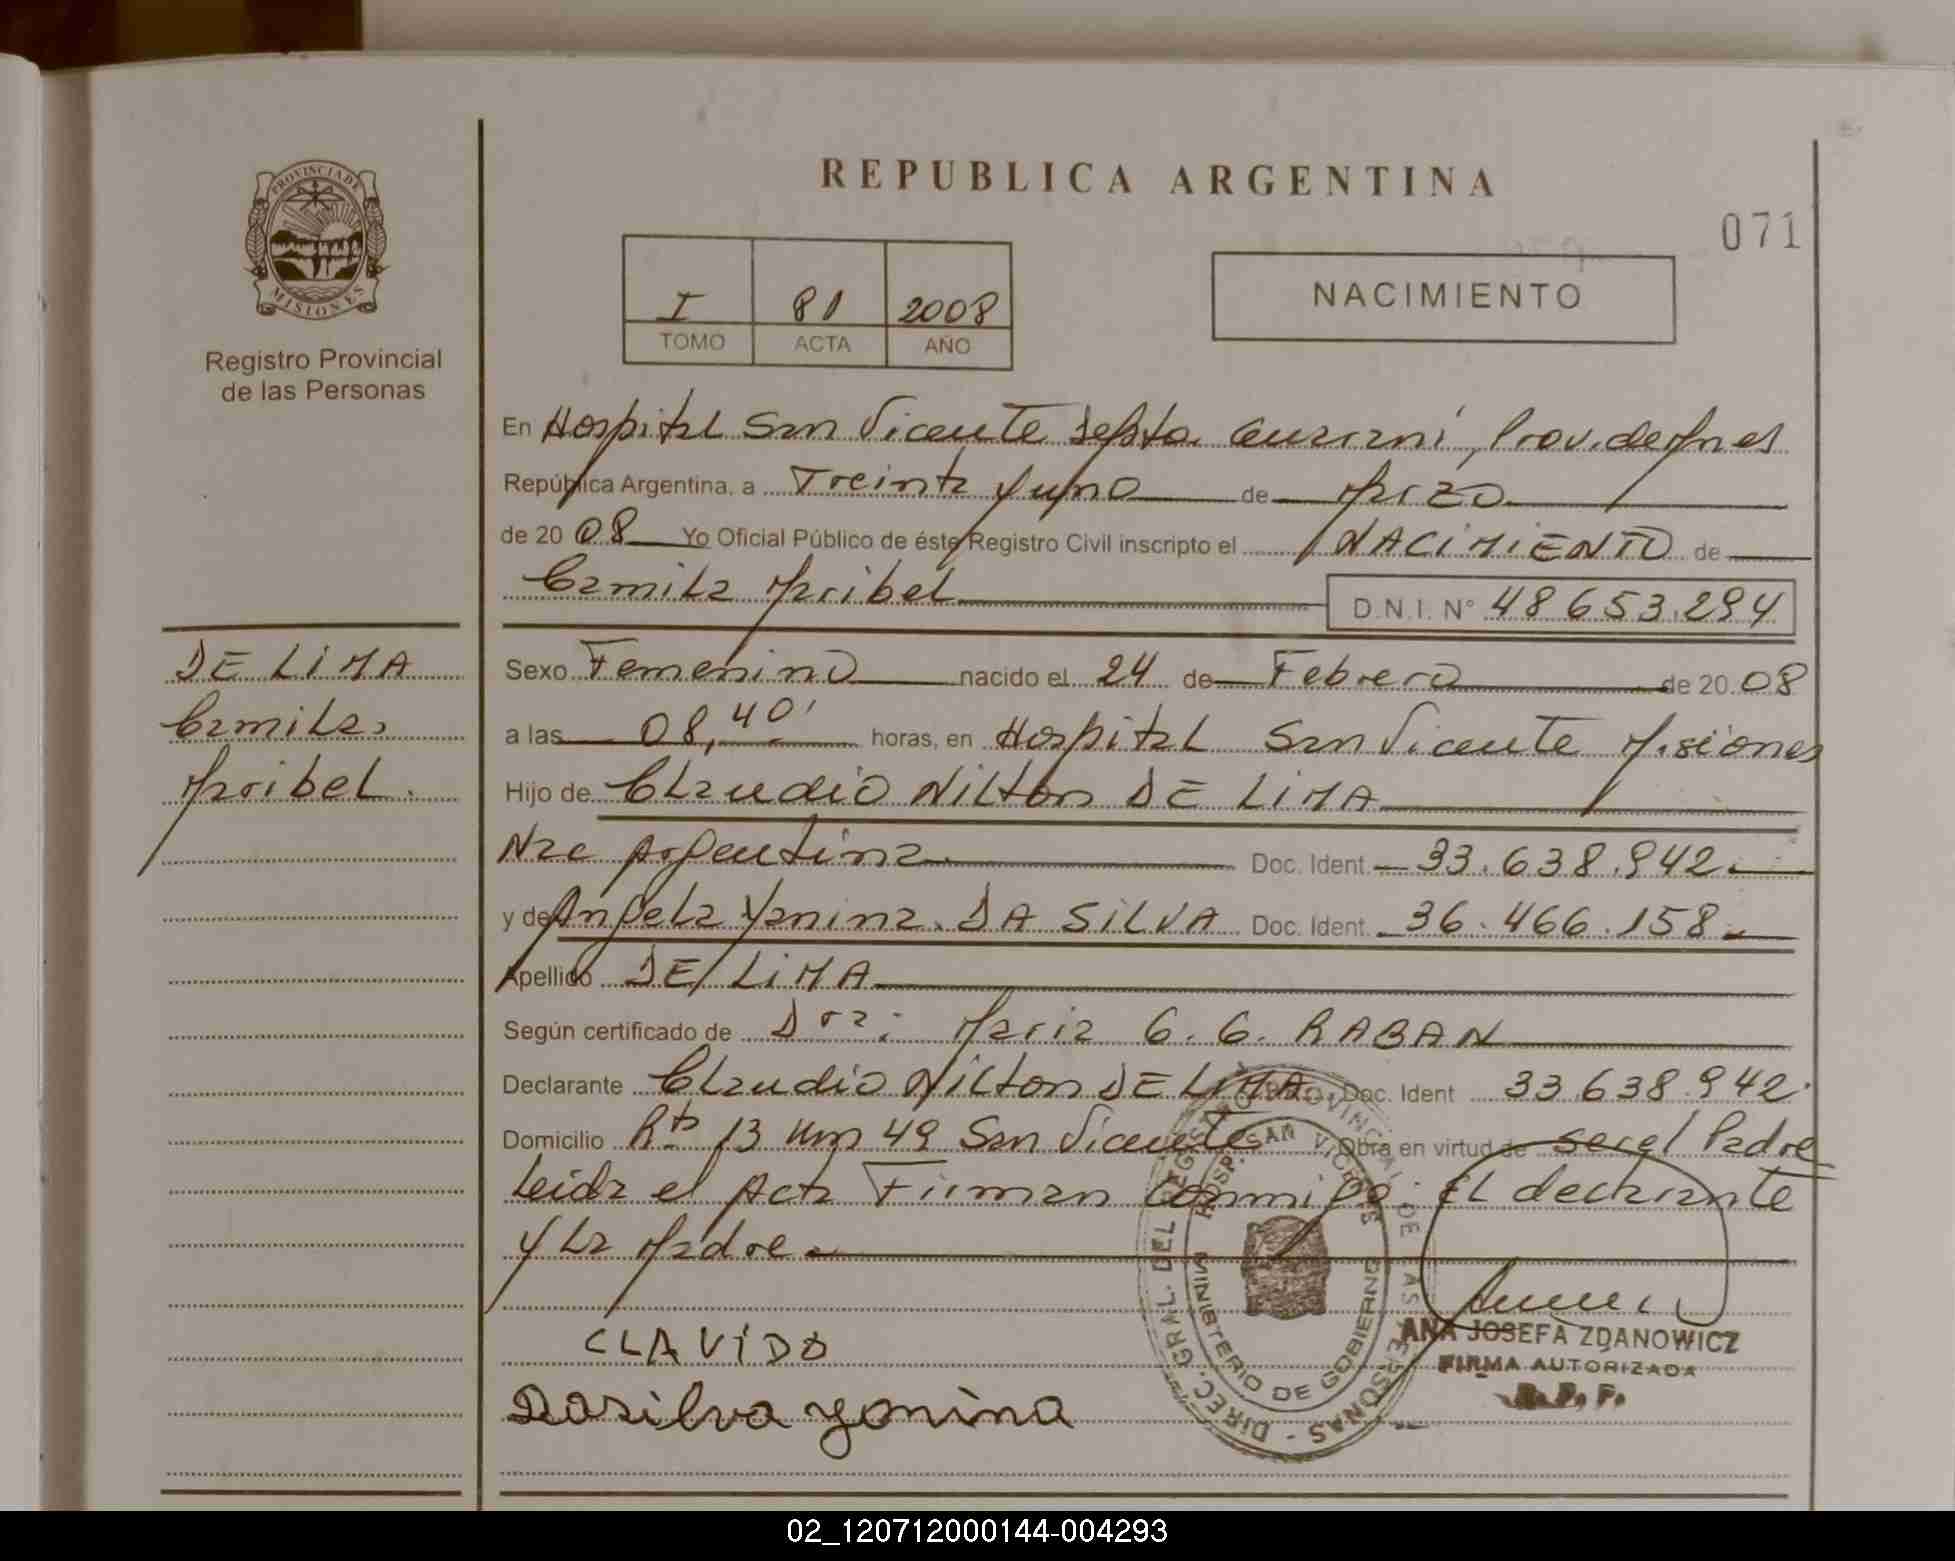 REPUBLICA ARGENTINA
071
PROVINCIA DE
MISIONES
Registro Provincial
de las Personas
I 81 2008
TOMO ACTA AÑO
NACIMIENTO
En Hospital San Vicente Depto. Guarani, Prov. de Mnes
República Argentina, a Treinta y uno de Marzo
de 2008 Yo Oficial Público de éste Registro Civil inscripto el NACIMIENTO de
Camila Maribel D.N.I. N° 48653.294
DE LIMA
Camila,
Maribel.
Sexo Femenino nacido el 24 de Febrero de 2008
a las 08,40' horas, en Hospital San Vicente Misiones
Hijo de Claudio Nilton DE LIMA
Nac Argentina. Doc. Ident. 33.638.942.
y de Angela Yanina. DA SILVA Doc. Ident. 36.466.158
Apellido DE LIMA
Según certificado de Dra: Maria G. G. RABAN
Declarante Claudio Nilton DE LIMA Doc. Ident 33.638.942.
Domicilio Rta 13 Km 49 San Vicente Obra en virtud de ser el Padre
Leida el Acta Firman Conmigo: EL declarante
y La Madre
CLAVIDO
Dasilva yanina
DIREC. GRAL. DEL REGISTRO PROVINCIAL DE LAS PERSONAS -
HOSP. SAN VICENTE
MINISTERIO DE GOBIERNO
ANA JOSEFA ZDANOWICZ
FIRMA AUTORIZADA
R. P. F.
02_120712000144-004293